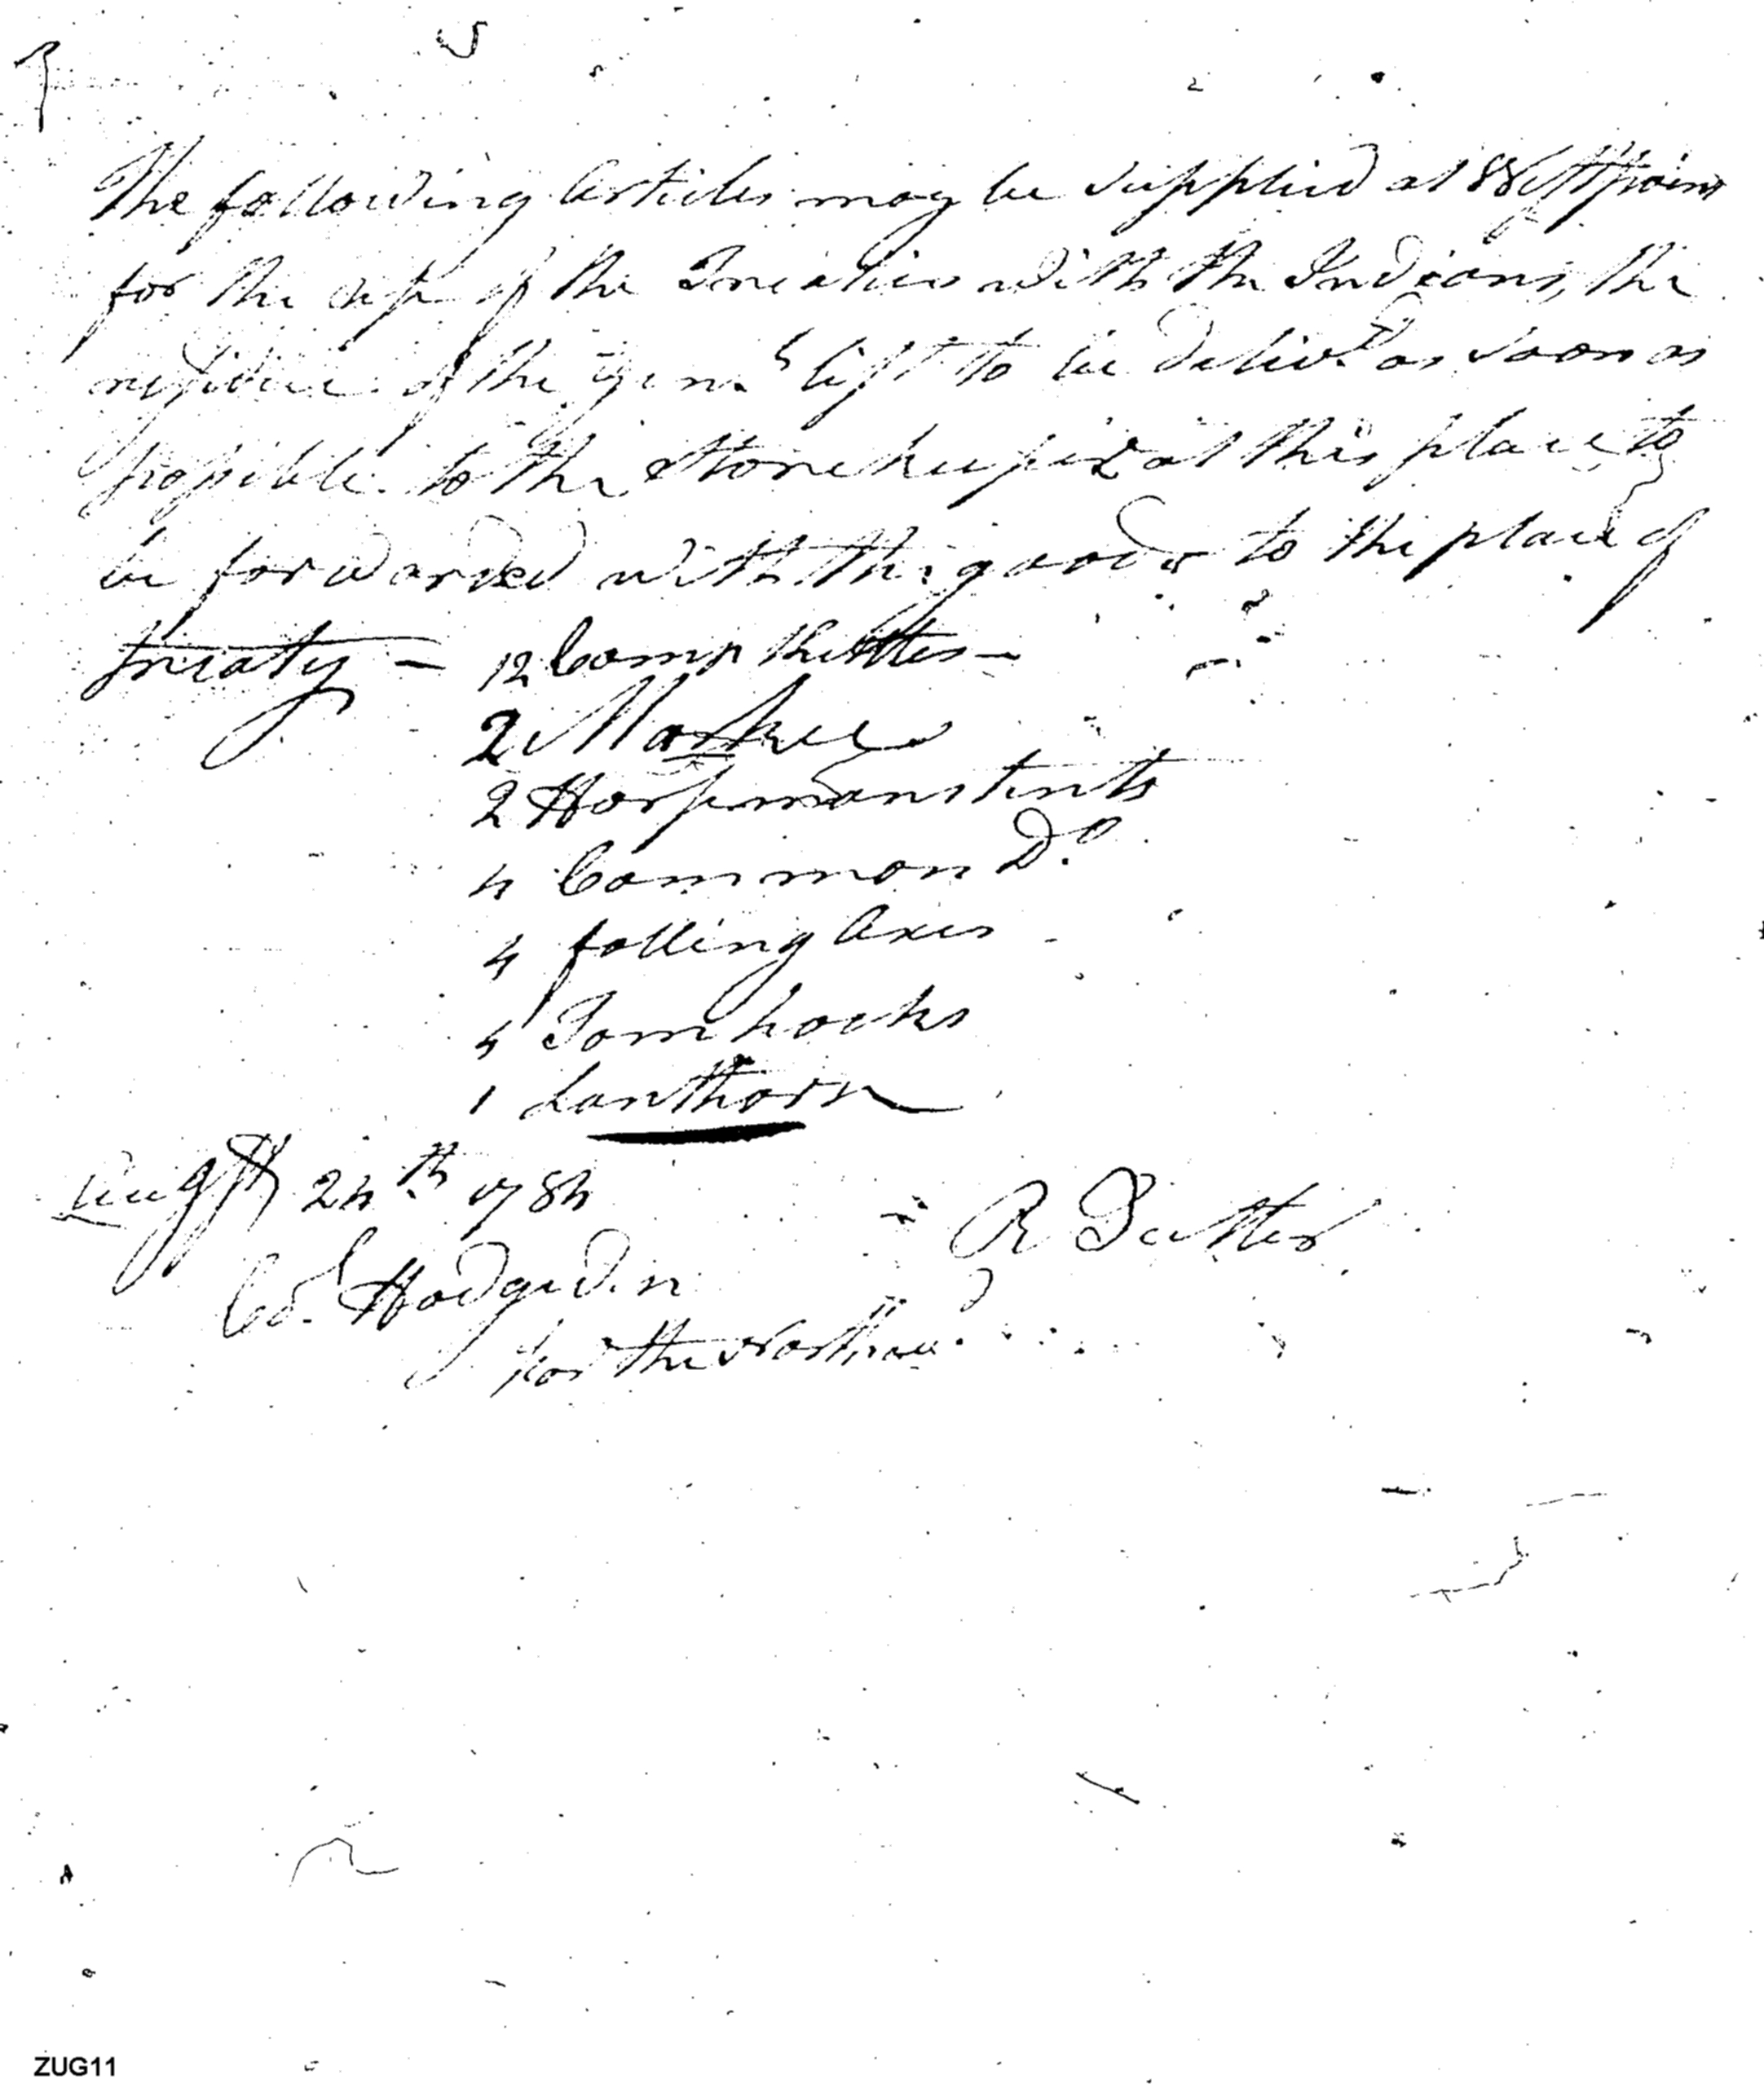 The following Articles may be supplied at West point
for the use of the Treaties with the Indians, the
residue of the Gen.l list to be deliv.d as soon as
possible to the Storekeeper at this place to
be forwarded with the goods to the place of
treaty – 12 Camp Kettles –
2 Markees
2 Horsemans tents
4 Common D.o
4 falling Axes
4 Tomhocks
1 Lanthorn
Augst 24th 1784
R Butler
Cs. Hodgdon
for the
ZUG11